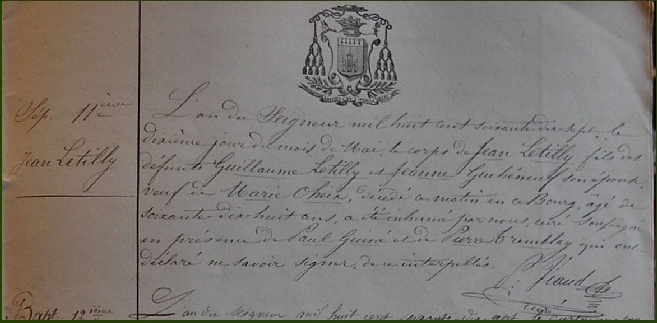 Sép. 11ième
Jean Letilly
L'an du Seigneur mil huit cent soixante dix-sept, le
dixième jour du mois de Mai, le corps de Jean Letilly fils des
défunts Guillaume Letilly et Jeanne son épouse,
veuf de Marie décédé ce matin en ce Bourg, agé de
soixante dix-huit ans, a été inhumé par nous, curé soussigné
en présence de Paul et de Pierre Tremblay qui ont
déclaré ne savoir signer, de ce interpellés.
curé
Bapt. 12ième
L'an du Seigneur mil huit cent soixante dix sept